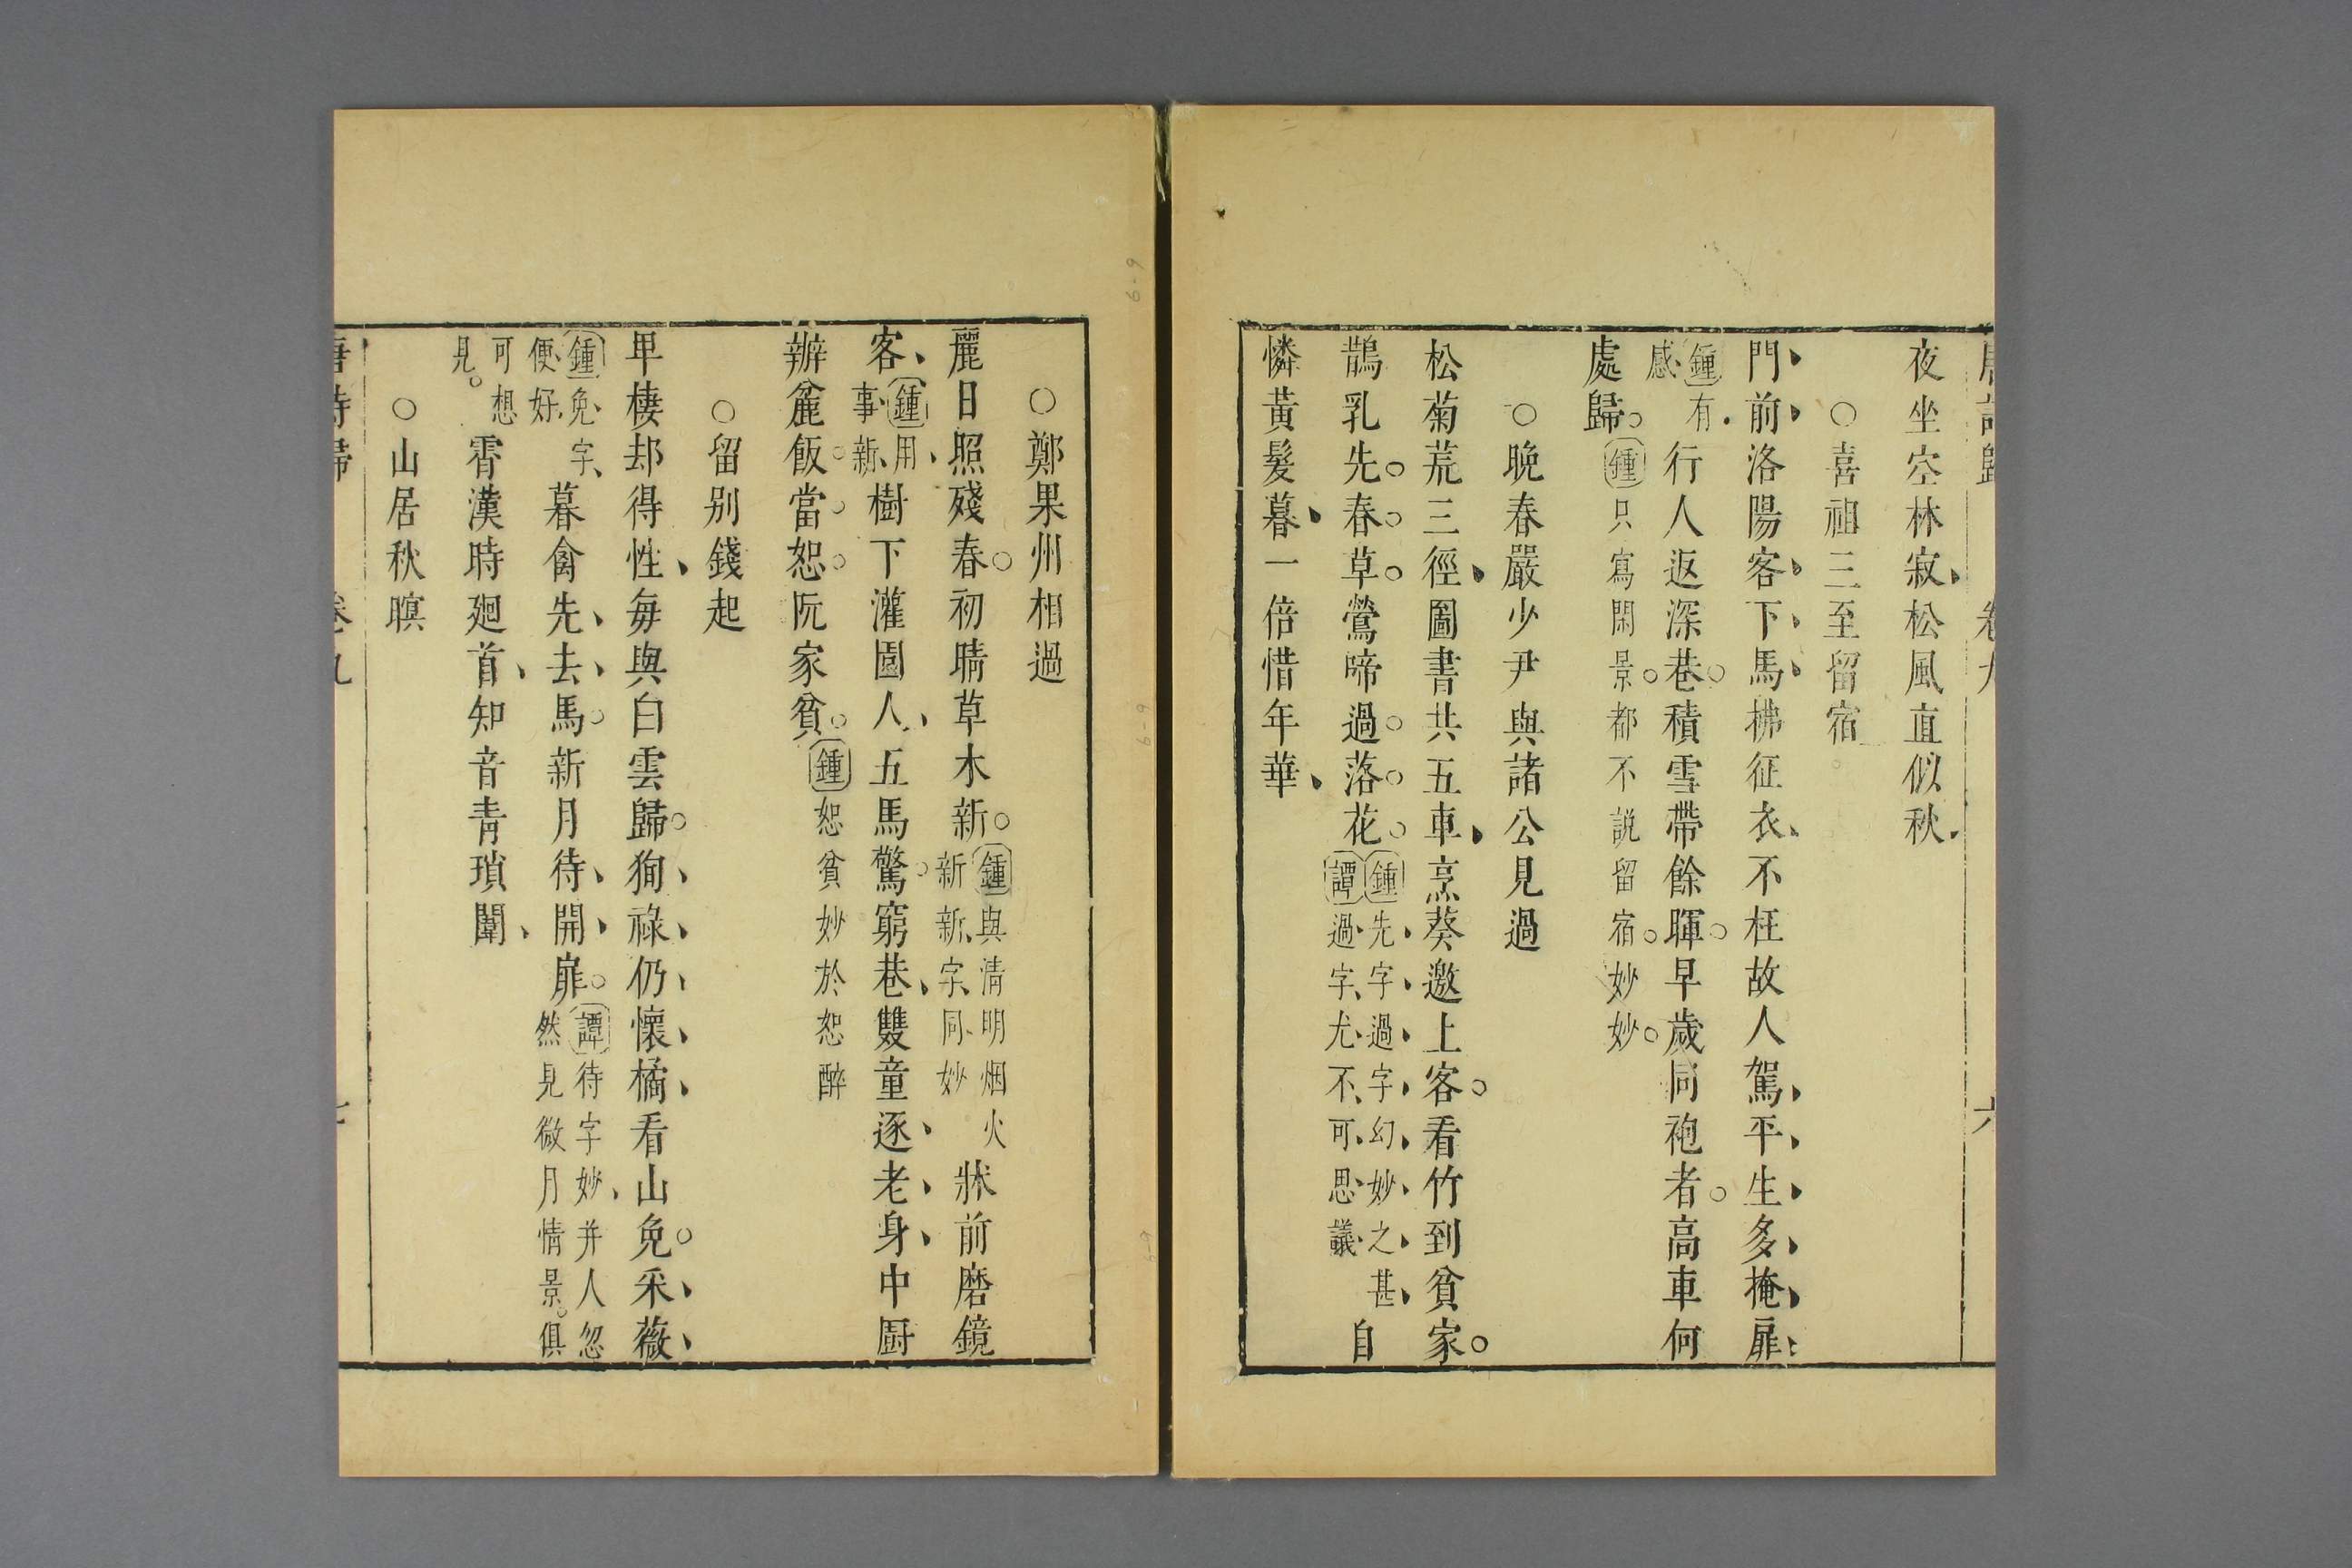 唐詩歸 卷九 六
夜坐空林寂松風直似秋
○喜祖三至留宿
門前洛陽客下馬拂征衣不枉故人駕平生多掩扉
鍾有感行人返深巷積雪帶餘暉早歲同袍者高車何
處歸鍾只寫閑景都不說留宿妙妙
○晚春嚴少尹與諸公見過
松菊荒三徑圖書共五車烹葵邀上客看竹到貧家
鵲乳先春草鶯啼過落花鍾先字過字幻妙之甚譚過字尤不可思議自
憐黃髮暮一倍惜年華
○鄭果州相過
麗日照殘春初晴草木新鍾與清明烟火新新字同妙牀前磨鏡
客鍾用事新樹下灌園人五馬驚窮巷雙童逐老身中厨
辦麄飯當恕阮家貧鍾恕貧妙於恕醉
○留别錢起
卑棲却得性每與白雲歸狥祿仍懷橘看山免采薇
鍾免字便好暮禽先去馬新月待開扉譚待字妙并人忽然見微月情景俱
可想見霄漢時廻首知音青瑣闈
○山居秋暝
唐詩歸 卷九 七